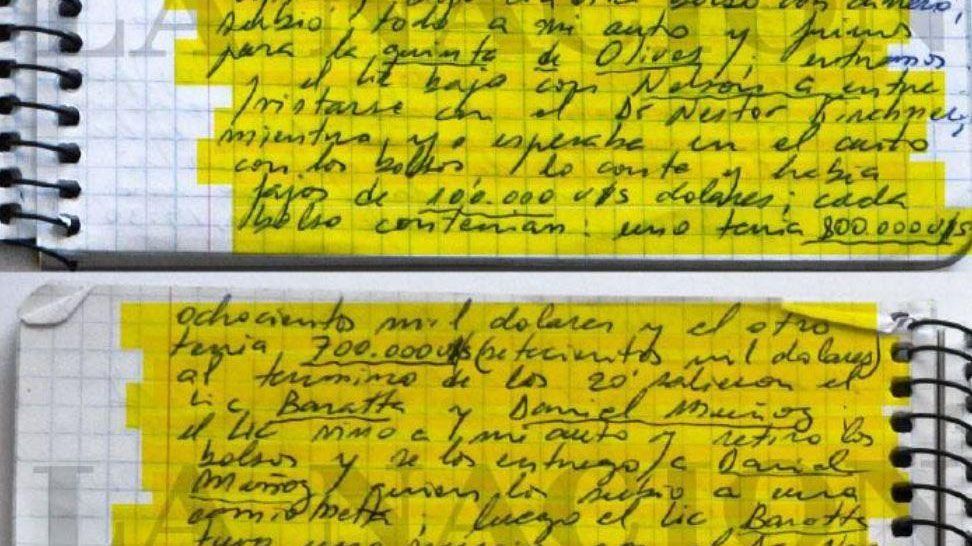 bolso con dinero,
subio todo a mi auto y fuimos
para la quinta de Olivos; entramos
y el Lic bajo con Nelson a entre
vistarse con el Dr Nestor Kirchner,
mientras yo esperaba en el auto
con los bolsos, lo conte y habia
fajos de 100.000 U$S dolares; cada
bolso contenian: uno tenia 800.000U$S
ochocientos mil dolares y el otro
tenia 700.000U$S (setecientos mil dolares)
al termino de los 20' salieron el
Lic Baratta y Daniel Muñoz
el Lic vino a mi auto y retiro los
bolsos y se los entrego a Daniel
Muñoz, quien los subio a una
camioneta; luego el Lic Baratta
tuvo una
LA NACION
LA NACION